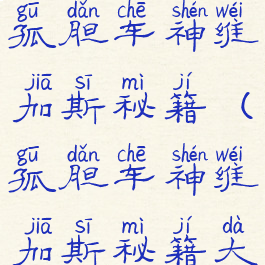 gū dǎn chē shén wéi
孤胆车神维
jiā sī mì jí
加斯秘籍（
gū dǎn chē shén wéi
孤胆车神维
jiā sī mì jí dà
加斯秘籍大